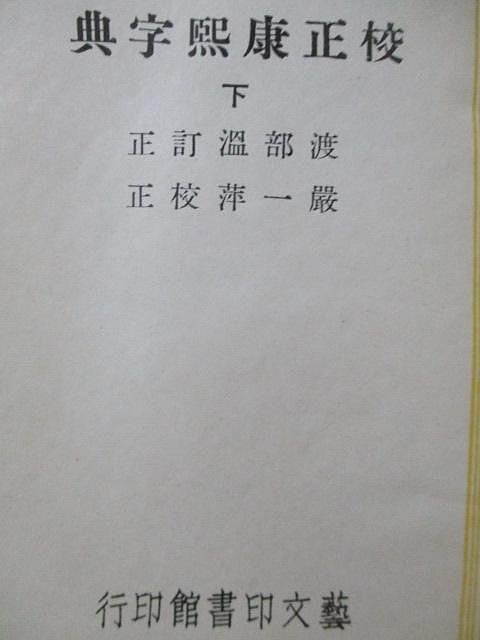 校正康熙字典
下
渡部溫訂正
嚴一萍校正
藝文印書館印行